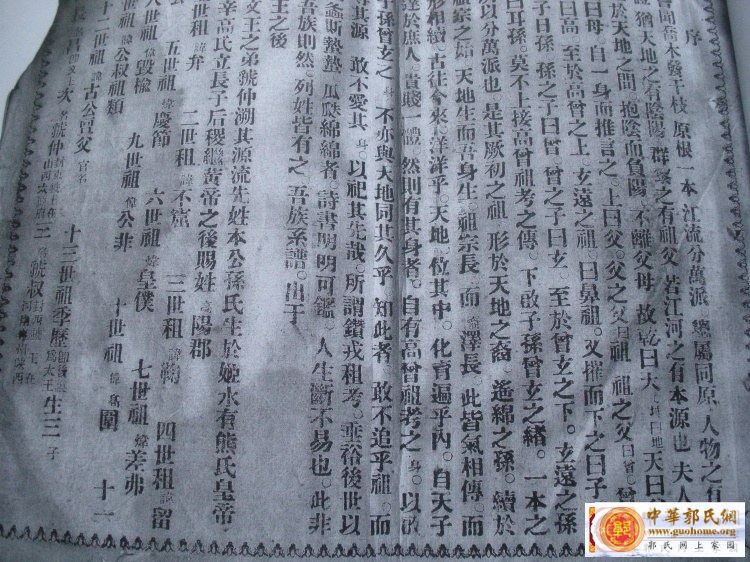 序
嘗聞喬木發千枝。原根一本。江流分萬派。總屬同原。人物之有
猶天地之有陰陽。群黎之有祖父。若江河之有本源也。夫人
於天地之間。抱陰而負陽。不離父母。故乾曰天。坤曰地天曰
曰母。自一身而推言之。上曰父。父之父曰祖。祖之父曰曾。曾
曰高。至於高曾之上。玄遠之祖。曰鼻祖。又推而下之曰子
子曰孫。孫之子曰曾。曾之子曰玄。至於曾玄之下。玄遠之孫
曰耳孫。莫不上接高曾祖考之傳。下啟子孫曾玄之緒。一本之
所以分萬派也。是其厥初之祖。形於天地之裔。遙綿之孫。續於
之始。天地生而吾身生。祖宗長。而澤長。此皆氣相傳。而
形相續。古往今來。洋洋乎。天地位其中。化育遍乎內。自天子
達於庶人。貴賤一體。然則有其身者。自有高曾祖考之身。以啟
子孫曾玄之。不亦與天地同其久乎。知此者。敢不追乎祖。而
其源。敢不愛其身以祀其先哉。所謂鑽戎祖考。垂裕後世以
螽斯蟄蟄。瓜瓞綿綿者。詩書明明可鑑。人生斷不易也。此非
吾族則然。列姓皆有之。吾族系譜。出于
王之後
文王之弟虢仲溯其源流先姓本公孫氏生於姬水有熊氏皇帝
辛高氏立長子后稷繼黃帝之後賜姓高陽郡
弁 二世祖諱不窋 三世祖諱鞠 四世祖諱留
五世祖諱慶節 六世祖諱皇僕 七世祖諱差弗
八世祖諱毀楡 九世祖諱公非 十世祖諱高圉 十一
諱公叔祖類
十二世祖諱古公亶父 十三世祖季歷 生三子
長昌 次虢仲 三虢叔
中華郭氏網
www.guohome.org
郭氏网上家园